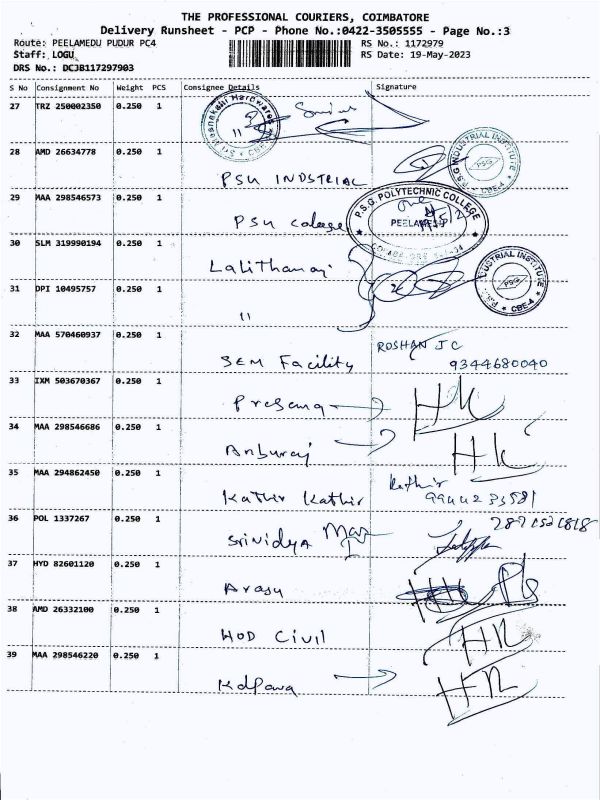 THE PROFESSIONAL COURIERS, COIMBATORE
Delivery Runsheet - PCP - Phone No.:0422-3505555 - Page No.:3
Route: PEELAMEDU PUDUR PC4 RS No.: 1172979
Staff: LOGU RS Date: 19-May-2023
DRS No.: DC3B117297903
S No Consignment No Weight PCS Consignee Details Signature
27 TRZ 250002350 0.250 1
28 AMD 26634778 0.250 1
PSG INDSTRIAL
P.S.G INDUSTRIAL INSTITUTE
PSG
CBE-4
29 MAA 298546573 0.250 1
PSG college
P.S.G. POLYTECHNIC COLLEGE
30 SLM 319990194 0.250 1
Lalithamaj
31 DPI 10495757 0.250 1
11
PSG
CBE-4
32 MAA 570460937 0.250 1
SEM Facility
ROSHAN J C
9344680040
33 IXM 503670367 0.250 1
Presana
34 MAA 298546686 0.250 1
Anburaj
35 MAA 294862450 0.250 1
Kathir Kathir
Kathir
36 POL 1337267 0.250 1
Srividya
37 HYD 82601120 0.250 1
Arasu
38 AMD 26332100 0.250 1
HOD Civil
39 MAA 298546220 0.250 1
Kalpana